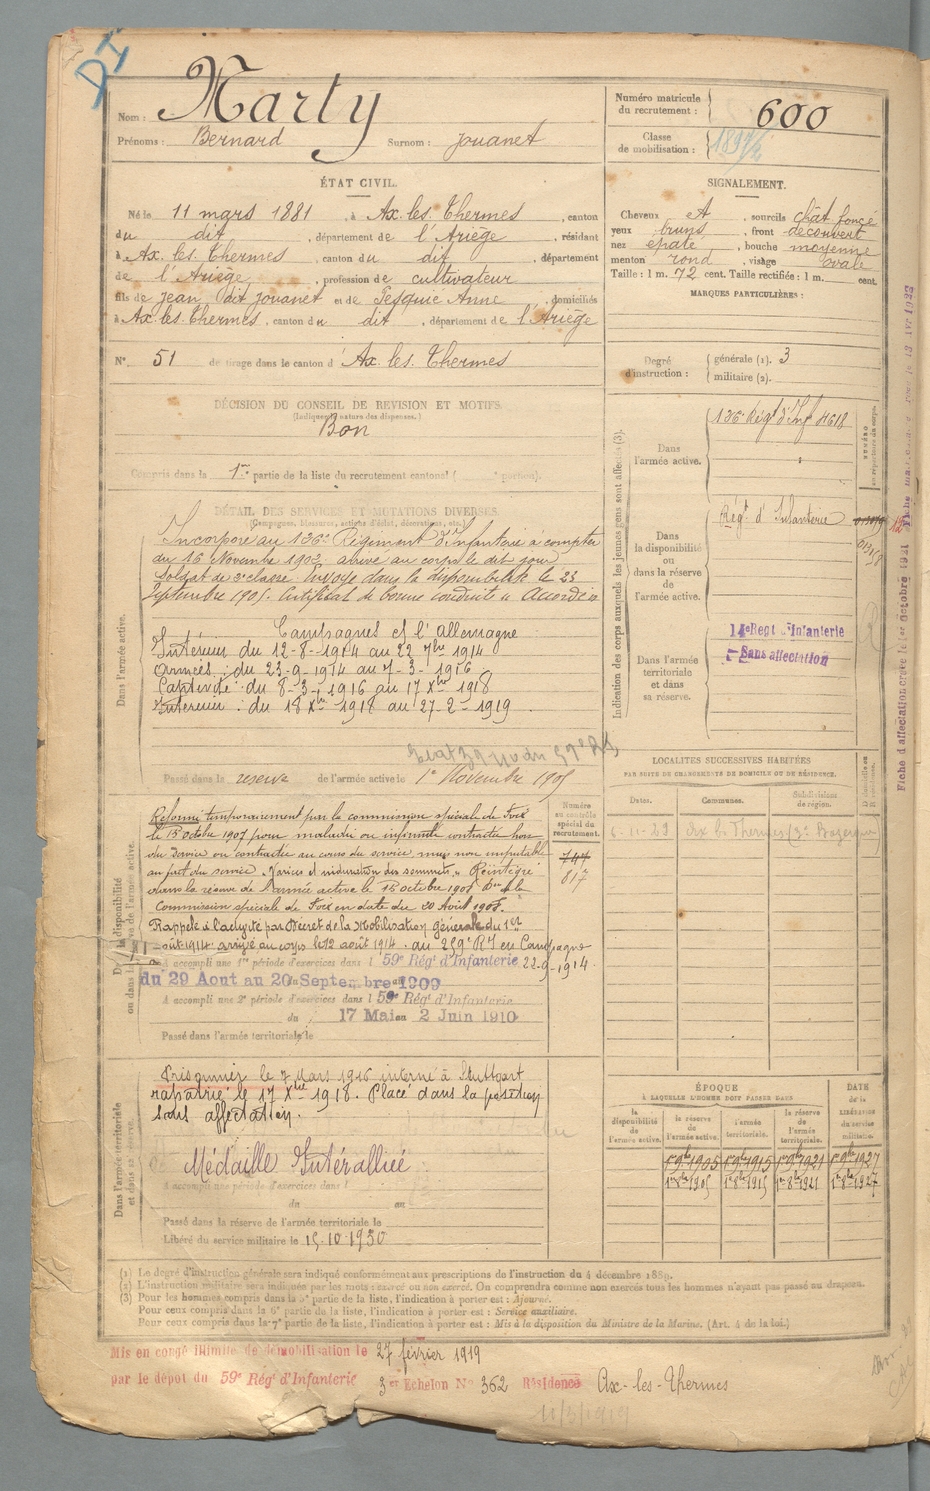 Nom : Marty
Prénoms : Bernard Surnom : Jouanet
Numéro matricule
du recrutement : 600
Classe
de mobilisation : 1897/4
ÉTAT CIVIL.
Né le 11 mars 1881, à Ax. les. Thermes, canton
du dit, département de l'Ariège, résidant
à Ax. les. Thermes, canton du dit, département
de l'Ariège, profession de cultivateur
fils de Jean dit Jouanet et de Sesquié Anne, domiciliés
à Ax. les. Thermes, canton du dit, département de l'Ariège
N° 51 de tirage dans le canton d'Ax. les. Thermes
DÉCISION DU CONSEIL DE REVISION ET MOTIFS
(Indiquer la nature des dispenses.)
Bon
Compris dans la 1re partie de la liste du recrutement cantonal ( portion).
SIGNALEMENT.
Cheveux , sourcils chât. foncé
yeux bruns, front découvert
nez épaté, bouche moyenne
menton rond, visage ovale
Taille : 1 m. 72 cent. Taille rectifiée : 1 m. cent.
MARQUES PARTICULIÈRES :
Degré
d'instruction :
générale (1). 3
militaire (2).
Indication des corps auxquels les jeunes gens sont affectés (3).
Dans
l'armée active.
136e Régt d'Inf
NUMÉRO
au répertoire du corps.
Dans
la disponibilité
ou
dans la réserve
de
l'armée active.
Régt d'Infanterie
Dans l'armée
territoriale
et dans
sa réserve.
14e Régt d'Infanterie
Sans affectation
DÉTAIL DES SERVICES ET MUTATIONS DIVERSES.
(Campagnes, blessures, actions d'éclat, décorations, etc.)
Dans l'armée active.
Incorporé au 136e Régiment d'Infanterie à compter
du 16 Novembre 1902, arrivé au corps le dit jour
Soldat de 2e classe. Envoyé dans la disponibilité le 23
Septembre 1905. Certificat de bonne conduite "Accordé"
Campagnes cf l'allemagne
Intérieur du 12-8-1914 au 22 7bre 1914
Armées : du 23-9-1914 au 7-3-1916
Captivité : du 8-3-1916 au 17 Xbre 1918
Intérieur : du 18 Xbre 1918 au 27-2-1919
Passé dans la réserve de l'armée active le 1er Novembre 1905
Dans la disponibilité
ou dans la réserve de l'armée active
Numéro
au contrôle
spécial du
recrutement.
747
817
Réformé temporairement par la commission spéciale de Foix
le 15 octobre 1907 pour maladie ou infirmité contractée hors
du service ou contractée au cours du service mais non imputable
au fait du service Réintégré
dans la réserve de l'armée active le 15 octobre 1908
Commission spéciale de Foix en date du 20 Août 1908.
Rappelé à l'activité par Décret de la Mobilisation générale du 1er
août 1914 arrivé au corps le 12 août 1914. au 259e RI en Campagne
22-9-1914.
A accompli une 1re période d'exercices dans l 59e Régt d'Infanterie
du 29 Aout au 20 Septembre 1909
A accompli une 2e période d'exercices dans l 59e Régt d'Infanterie
du 17 Mai au 2 Juin 1910
Passé dans l'armée territoriale le
Dans l'armée territoriale
et dans sa réserve.
Prisonnier le 7 Mars 1916 interné à Stuttgart
rapatrié le 17 Xbre 1918. Placé dans la position
sans affectation.
Médaille Interalliée
A accompli une période d'exercices dans l
du au
Passé dans la réserve de l'armée territoriale le
Libéré du service militaire le 15-10-1930
LOCALITÉS SUCCESSIVES HABITÉES
PAR SUITE DE CHANGEMENTS DE DOMICILE OU DE RÉSIDENCE.
Dates. Communes. Subdivisions
de région. Domicile ou
Résidence.
6-11-23 Ax-les-Thermes
ÉPOQUE
À LAQUELLE L'HOMME DOIT PASSER DANS
DATE
de la
LIBÉRATION
du service
militaire.
la
disponibilité
de
l'armée active.
la réserve
de
l'armée active.
l'armée
territoriale.
la réserve
de
l'armée
territoriale.
1er 9bre 1905 1er 9bre 1915 1er 9bre 1921 1er 9bre 1927
1er 8bre 1905 1er 8bre 1915 1er 8bre 1921 1er 8bre 1927
(1) Le degré d'instruction générale sera indiqué conformément aux prescriptions de l'instruction du 4 décembre 1889.
(2) L'instruction militaire sera indiquée par les mots exercé ou non exercé. On comprendra comme non exercés tous les hommes n'ayant pas passé au drapeau.
(3) Pour les hommes compris dans la 5e partie de la liste, l'indication à porter est : Ajourné.
Pour ceux compris dans la 6e partie de la liste, l'indication à porter est : Service auxiliaire.
Pour ceux compris dans la 7e partie de la liste, l'indication à porter est : Mis à la disposition du Ministre de la Marine. (Art. 4 de la loi.)
Mis en congé illimité de démobilisation le 27 février 1919
par le dépôt du 59e Régt d'Infanterie 3er Echelon N° 362 Résidence Ax-les-Thermes
11/3/1919